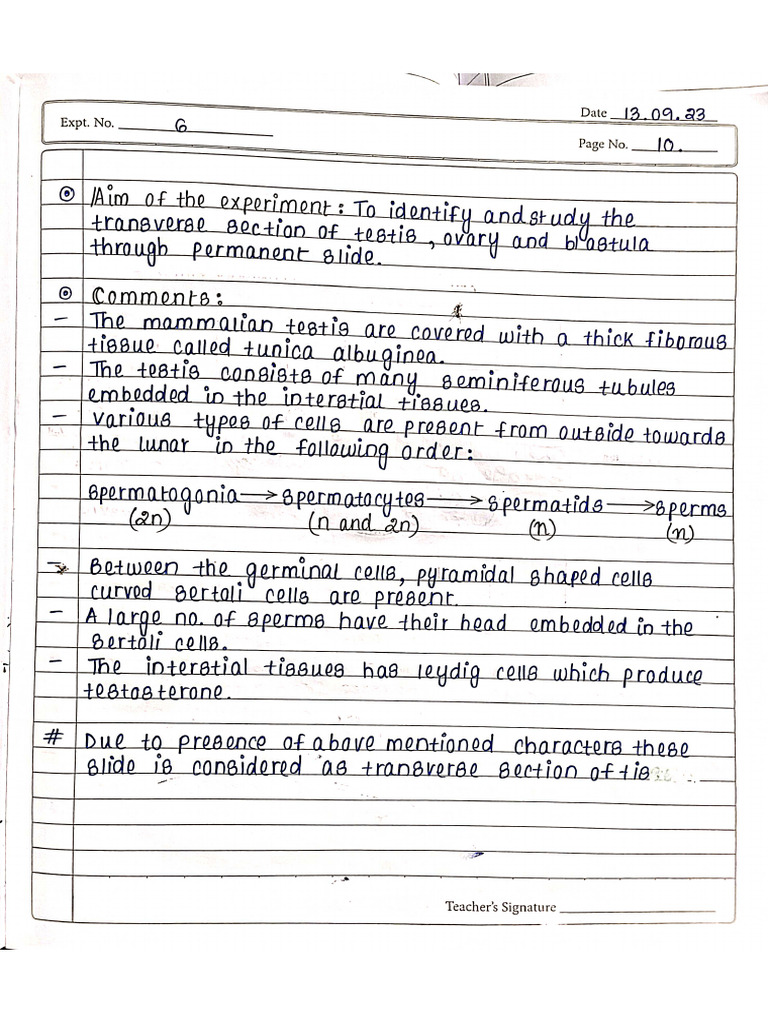 Date 13.09.23
Expt. No. 6
Page No. 10.
Aim of the experiment: To identify and study the
transverse section of testis, ovary and blastula
through permanent slide.
Comments:
- The mammalian testis are covered with a thick fiborous
tissue called tunica albuginea.
- The testis consists of many seminiferous tubules
embedded in the interstial tissues.
- Various types of cells are present from outside towards
the lunar in the following order:
spermatogonia → spermatocytes → spermatids → sperms
(2n) (n and 2n) (n) (n)
→ Between the germinal cells, pyramidal shaped cells
curved sertoli cells are present.
- A large no. of sperms have their head embedded in the
sertoli cells.
- The interstial tissues has leydig cells which produce
testosterone.
# Due to presence of above mentioned characters these
slide is considered as transverse section of tis
Teacher's Signature